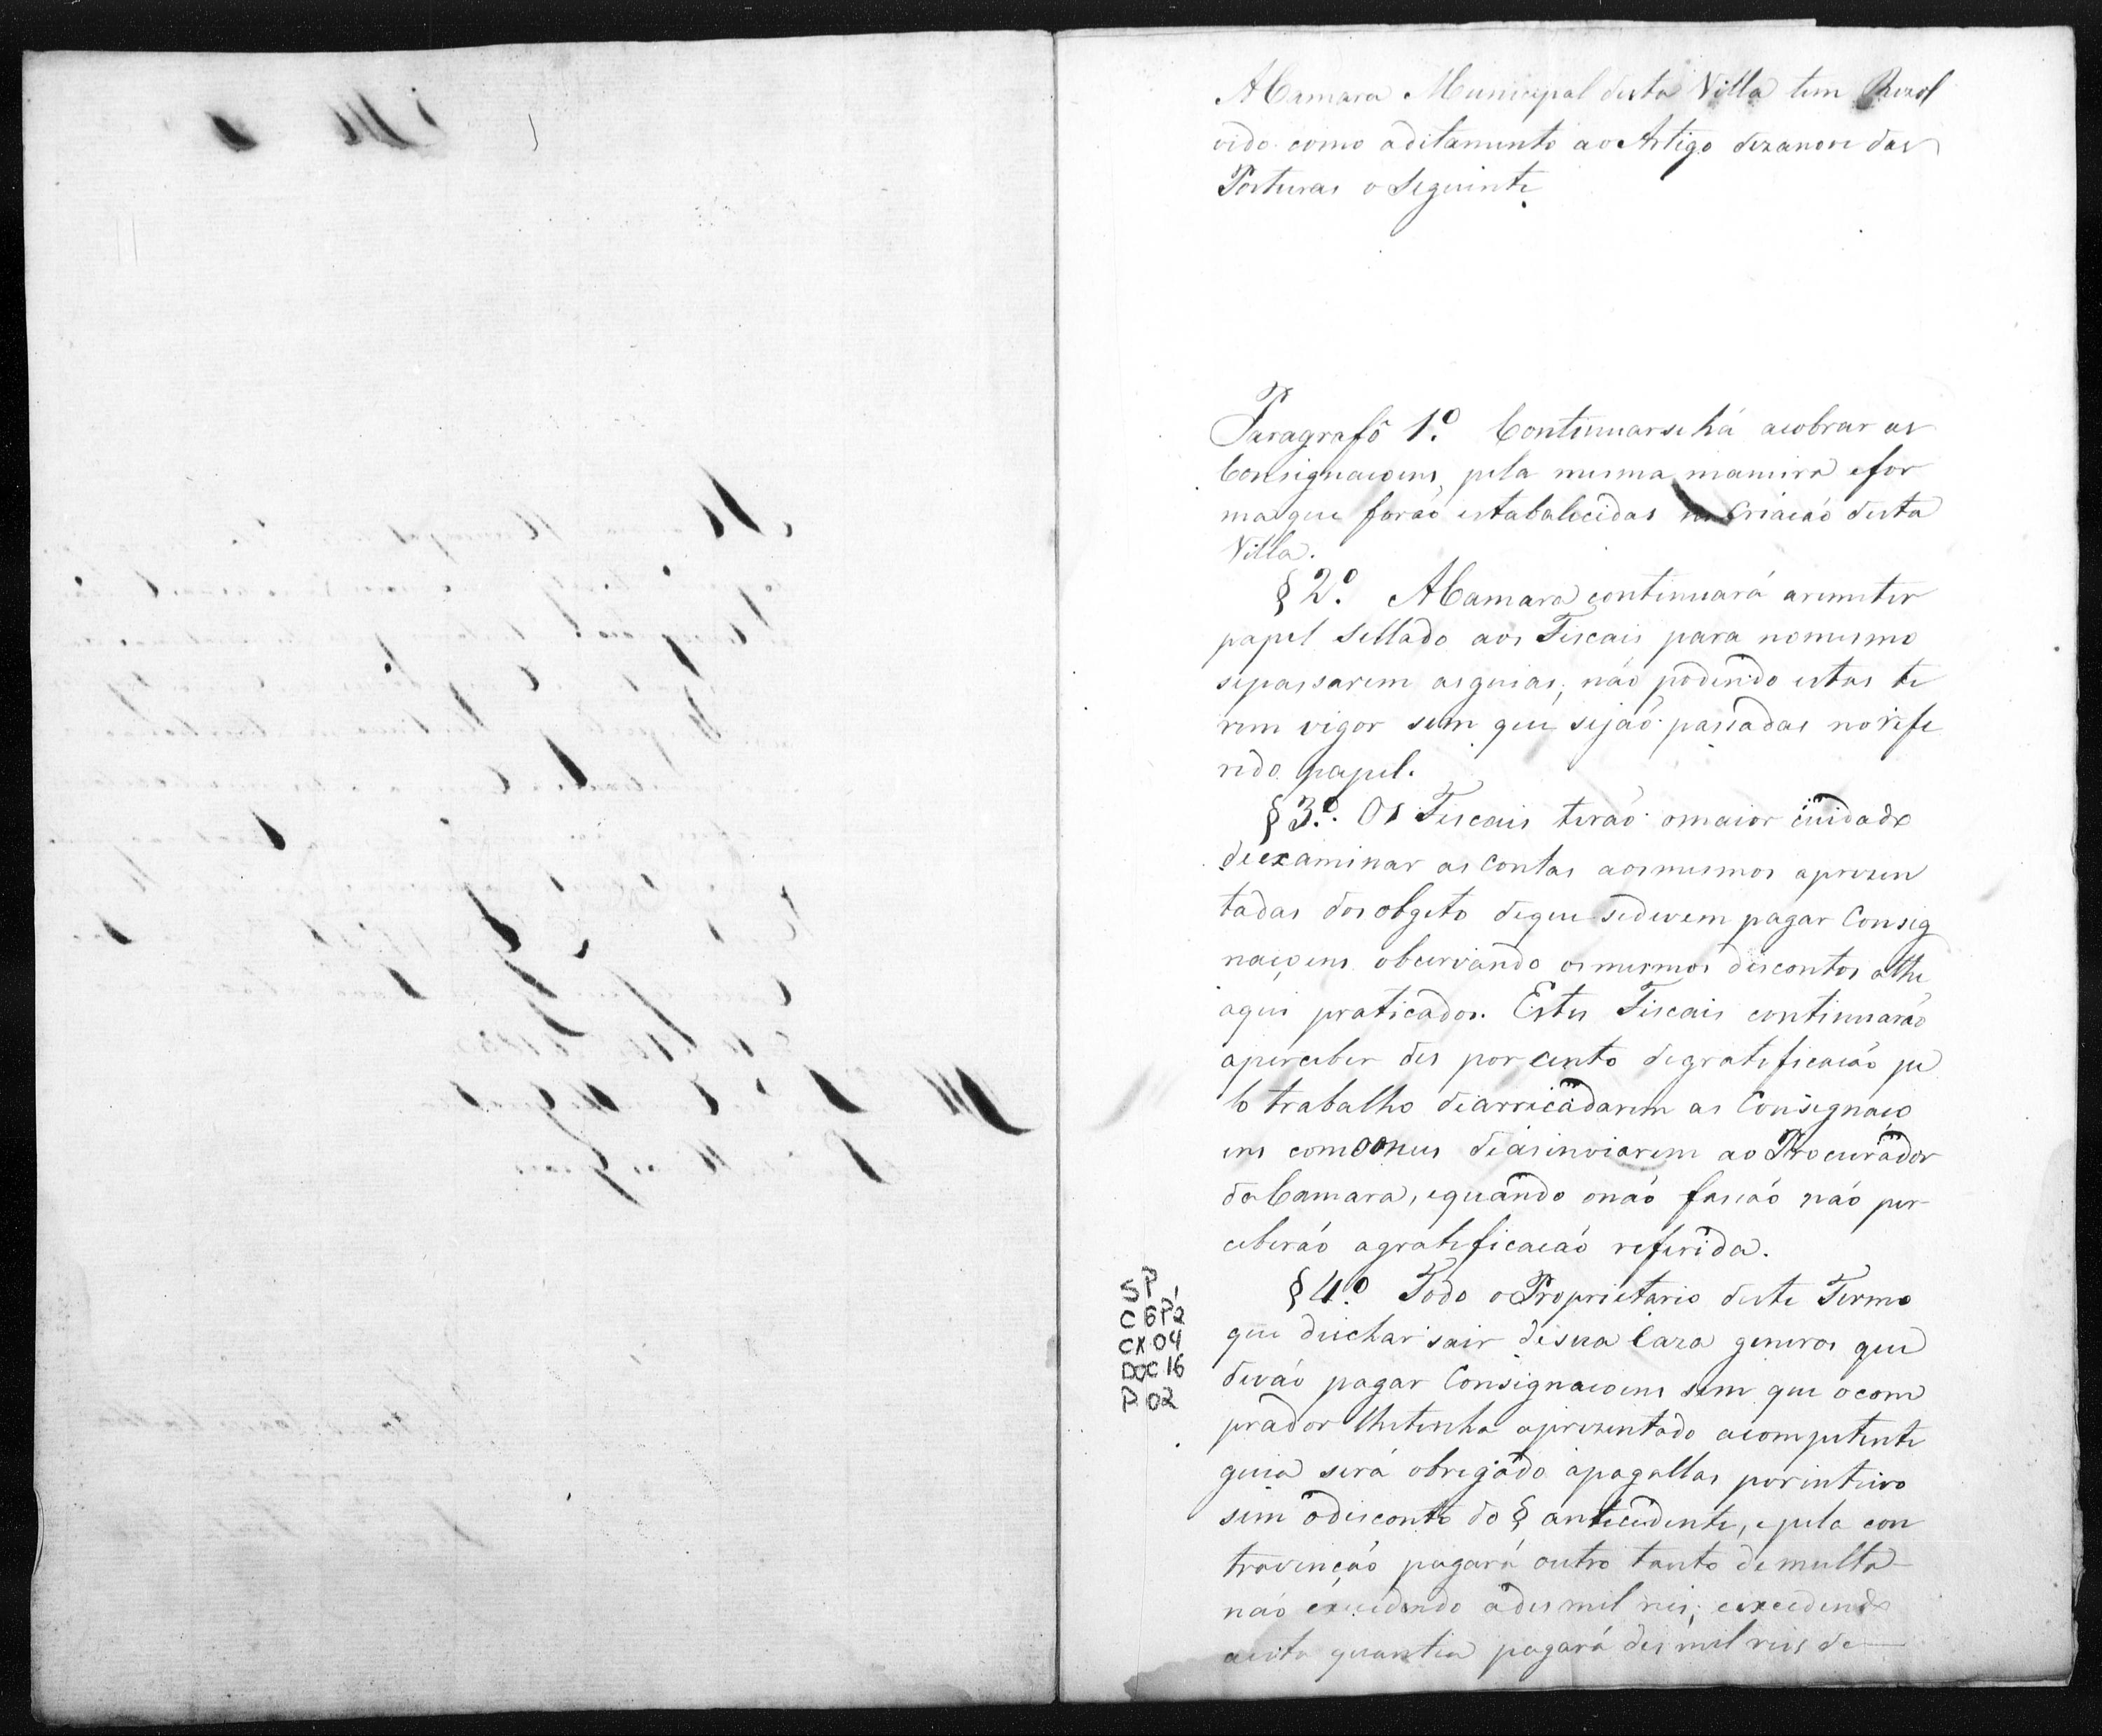 A Camara Municipal desta Villa tem Rezol
vido como aditamento ao Artigo dezanove das
Posturas o Seguinte.
Paragrafô 1º. Continuarseha acobrar as
Consignacoens, pela mesma maneira efor
maque foraõ estabalecidas na Criacaõ desta
Villa.
§2º. A Camara continuará aremeter
papel Sellado aos Fiscais para nomesmo
sepassarem asguias, naõ podendo estas te
rem vigor sem que sejaõ passadas norefe
rido papel.
§3º. Os Fiscais teraõ omaior cuidado
deexaminar as contas aosmesmos aprezen
tadas dos obgeto deque sedevem pagar Consig
naçoens obcervando osmesmos descontos athe
aqui praticados. Estes Fiscais continuaraõ
aperceber des por cento degratificacaõ pe
lo trabalho dearricadarem as Consignaço
ens com oonus deasinviarem ao Procurador
da Camara, equando onaõ facaõ naõ per
ceberáõ agratificacaõ referida.
§4º. Todo o Proprietario deste Termo
que deichar sair desua Caza generos que
devaõ pagar Consignacoens sem que ocom
prador lhetenha aprezentado acompetente
guia será obrigado apagallas porinteiro
sem odisconto do § antecedente, epela con
travençaõ pagará outro tanto demulta
naõ excedendo ades mil reis; eexcedendo
aesta quantia pagará des mil reis de
SP,
C6P2
CX04
DOC16
P.02